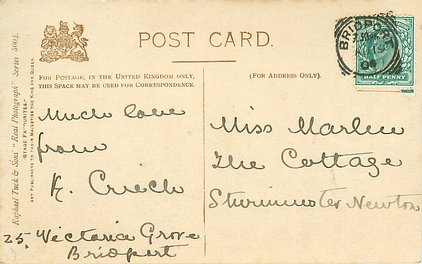 POST CARD.
FOR POSTAGE, IN THE UNITED KINGDOM ONLY,
THIS SPACE MAY BE USED FOR CORRESPONDENCE.
(FOR ADDRESS ONLY.)
Raphael Tuck & Sons' "Real Photograph" Series 5004.
"STAGE FAVOURITES."
ART PUBLISHERS TO THEIR MAJESTIES THE KING AND QUEEN.
BRIDPO
HALF PENNY
Much love
from
K. Criech
25, Victoria Grove
Bridport
Miss Marlee
The Cottage
Sturminster Newton